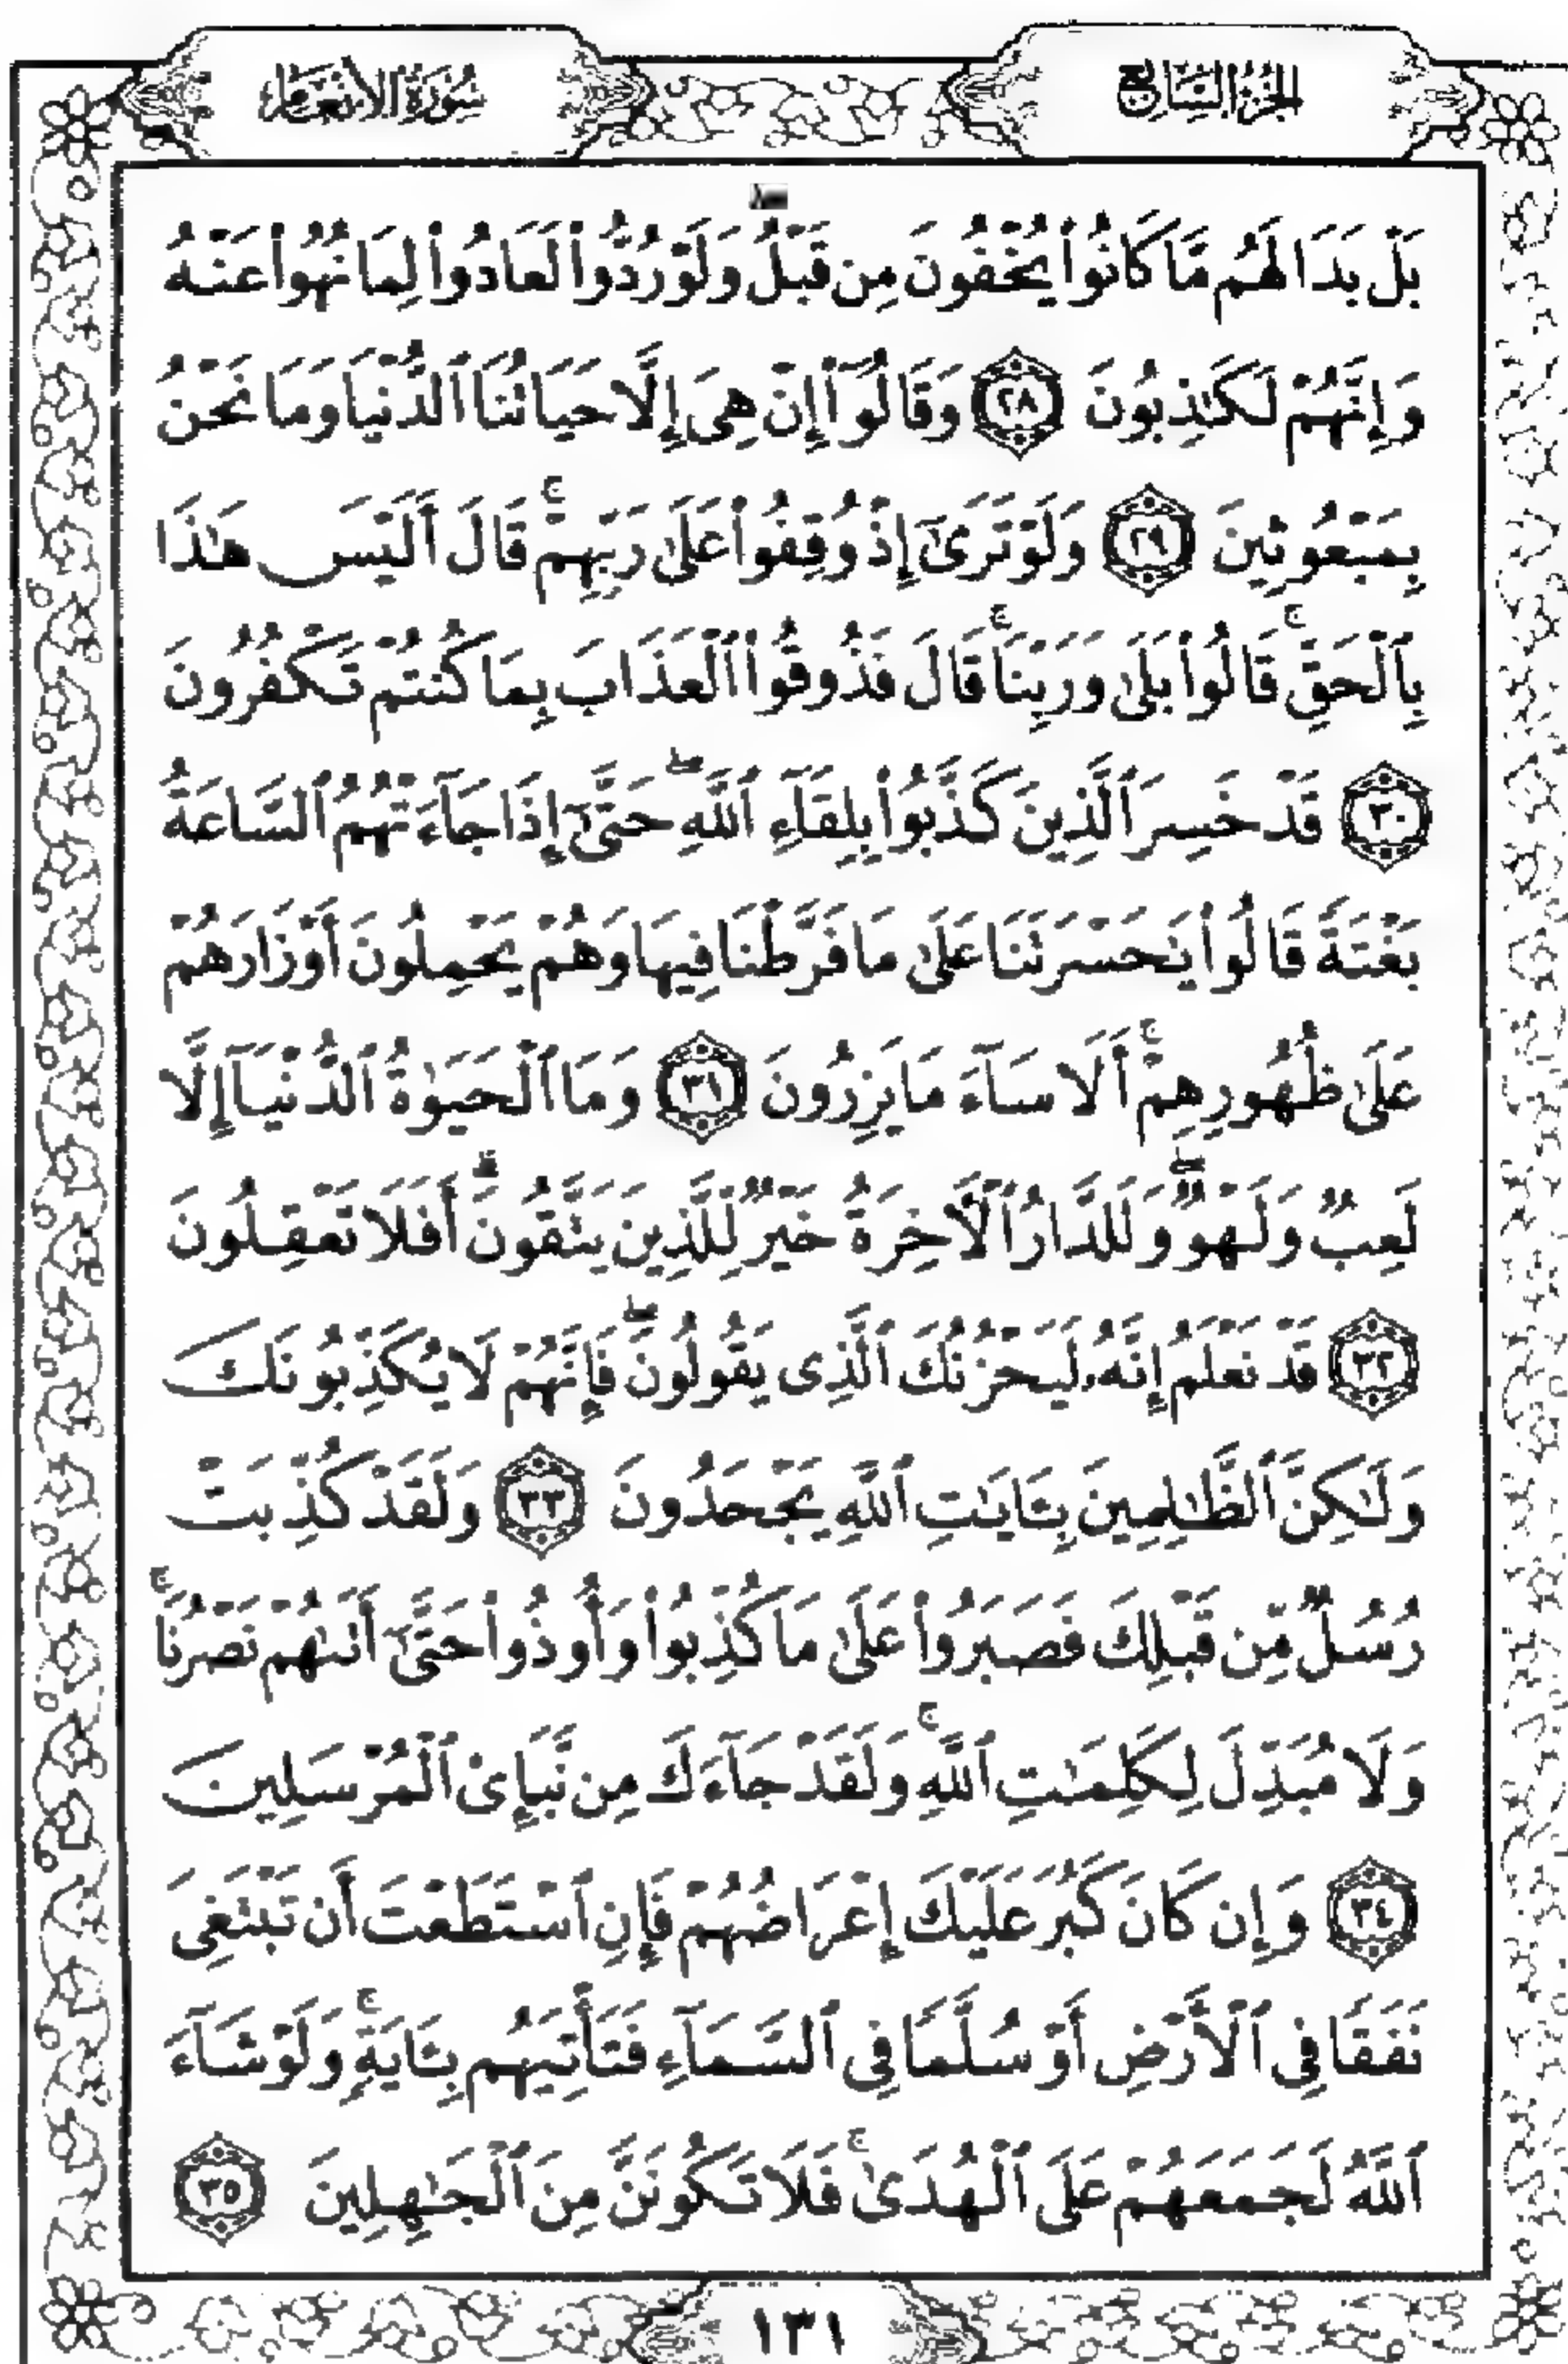 الجزء السابع
سورة الأنعام
بَلْ بَدَا لَهُم مَّا كَانُوا۟ يُخْفُونَ مِن قَبْلُ ۖ وَلَوْ رُدُّوا۟ لَعَادُوا۟ لِمَا نُهُوا۟ عَنْهُ
وَإِنَّهُمْ لَكَـٰذِبُونَ ٢٨ وَقَالُوٓا۟ إِنْ هِىَ إِلَّا حَيَاتُنَا ٱلدُّنْيَا وَمَا نَحْنُ
بِمَبْعُوثِينَ ٢٩ وَلَوْ تَرَىٰٓ إِذْ وُقِفُوا۟ عَلَىٰ رَبِّهِمْ ۚ قَالَ أَلَيْسَ هَـٰذَا
بِٱلْحَقِّ ۚ قَالُوا۟ بَلَىٰ وَرَبِّنَا ۚ قَالَ فَذُوقُوا۟ ٱلْعَذَابَ بِمَا كُنتُمْ تَكْفُرُونَ
٣٠ قَدْ خَسِرَ ٱلَّذِينَ كَذَّبُوا۟ بِلِقَآءِ ٱللَّهِ ۖ حَتَّىٰٓ إِذَا جَآءَتْهُمُ ٱلسَّاعَةُ
بَغْتَةً قَالُوا۟ يَـٰحَسْرَتَنَا عَلَىٰ مَا فَرَّطْنَا فِيهَا وَهُمْ يَحْمِلُونَ أَوْزَارَهُمْ
عَلَىٰ ظُهُورِهِمْ ۚ أَلَا سَآءَ مَا يَزِرُونَ ٣١ وَمَا ٱلْحَيَوٰةُ ٱلدُّنْيَآ إِلَّا
لَعِبٌ وَلَهْوٌ ۖ وَلَلدَّارُ ٱلْـَٔاخِرَةُ خَيْرٌ لِّلَّذِينَ يَتَّقُونَ ۗ أَفَلَا تَعْقِلُونَ
٣٢ قَدْ نَعْلَمُ إِنَّهُۥ لَيَحْزُنُكَ ٱلَّذِى يَقُولُونَ ۖ فَإِنَّهُمْ لَا يُكَذِّبُونَكَ
وَلَـٰكِنَّ ٱلظَّـٰلِمِينَ بِـَٔايَـٰتِ ٱللَّهِ يَجْحَدُونَ ٣٣ وَلَقَدْ كُذِّبَتْ
رُسُلٌ مِّن قَبْلِكَ فَصَبَرُوا۟ عَلَىٰ مَا كُذِّبُوا۟ وَأُوذُوا۟ حَتَّىٰٓ أَتَىٰهُمْ نَصْرُنَا ۚ
وَلَا مُبَدِّلَ لِكَلِمَـٰتِ ٱللَّهِ ۚ وَلَقَدْ جَآءَكَ مِن نَّبَإِى۟ ٱلْمُرْسَلِينَ
٣٤ وَإِن كَانَ كَبُرَ عَلَيْكَ إِعْرَاضُهُمْ فَإِنِ ٱسْتَطَعْتَ أَن تَبْتَغِىَ
نَفَقًا فِى ٱلْأَرْضِ أَوْ سُلَّمًا فِى ٱلسَّمَآءِ فَتَأْتِيَهُم بِـَٔايَةٍ ۚ وَلَوْ شَآءَ
ٱللَّهُ لَجَمَعَهُمْ عَلَى ٱلْهُدَىٰ ۚ فَلَا تَكُونَنَّ مِنَ ٱلْجَـٰهِلِينَ ٣٥
١٣١